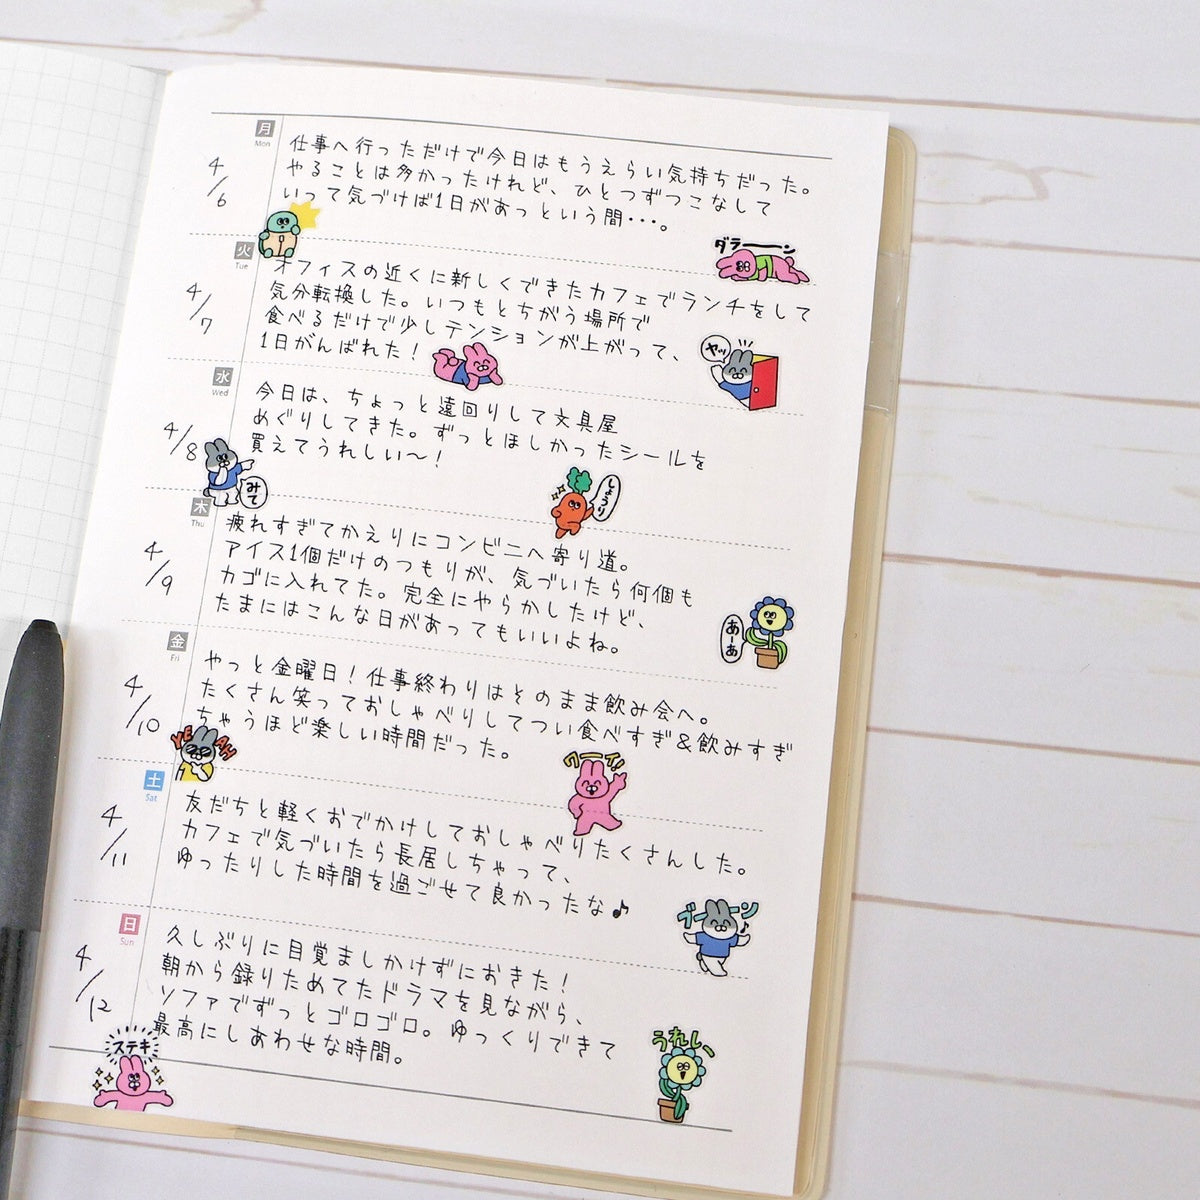 月
Mon
4/6
仕事へ行っただけで今日はもうえらい気持ちだった。
やることは多かったけれど、ひとつずつこなして
いって気づけば1日があっという間・・・。
ダラーーン
火
Tue
4/7
オフィスの近くに新しくできたカフェでランチをして
気分転換した。いつもとちがう場所で
食べるだけで少しテンションが上がって、
1日がんばれた！
ヤッ
水
Wed
4/8
今日は、ちょっと遠回りして文具屋
めぐりしてきた。ずっとほしかったシールを
買えてうれしい〜！
みて
しょうり
木
Thu
4/9
疲れすぎてかえりにコンビニへ寄り道。
アイス1個だけのつもりが、気づいたら何個も
カゴに入れてた。完全にやらかしたけど、
たまにはこんな日があってもいいよね。
あーあ
金
Fri
4/10
やっと金曜日！仕事終わりはそのまま飲み会へ。
たくさん笑っておしゃべりしてつい食べすぎ&飲みすぎ
ちゃうほど楽しい時間だった。
YEAH
ワーイ!
土
Sat
4/11
友だちと軽くおでかけしておしゃべりたくさんした。
カフェで気づいたら長居しちゃって、
ゆったりした時間を過ごせて良かったな♪
ブーーン
日
Sun
4/12
久しぶりに目覚ましかけずにおきた！
朝から録りためてたドラマを見ながら、
ソファでずっとゴロゴロ。ゆっくりできて
最高にしあわせな時間。
ステキ
うれしー